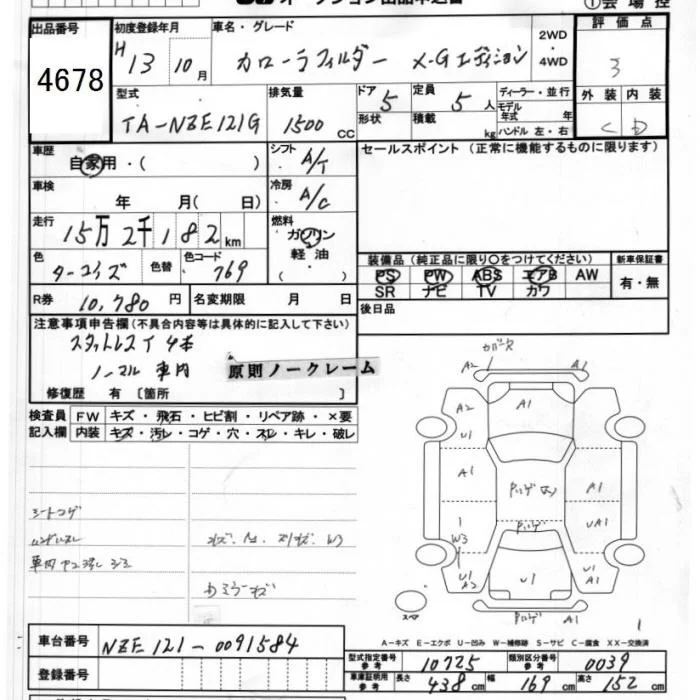 ①会場控
出品番号 初度登録年月 車名・グレード 2WD・4WD 評価点
4678 H13 10月 カローラフィルダー X-Gエディション 3
型式 排気量 ドア 定員 ディーラー・並行 外装 内装
TA-NZE121G 1500 cc 5 5人 モデル年式 年 C D
形状 積載 kg ハンドル 左・右
車歴 シフト セールスポイント (正常に機能するものに限ります)
自家用・( ) A/T
車検 冷房
年 月( 日) A/C
走行 燃料
15万2千182km ガソリン
軽油
・( )
色 色替 色コード
ターコイズ 769
装備品 (純正品に限り○をつけてください) 新車保証書
PS PW ABS エアB AW 有・無
SR ナビ TV カワ
R券 10,780円 名変期限 月 日 後日品
注意事項申告欄 (不具合内容等は具体的に記入して下さい)
スタットレスイ 4本
ノーマル 車内 原則ノークレーム
修復歴 有 [箇所 ]
検査員 FW キズ・飛石・ヒビ割・リペア跡・×要
記入欄 内装 キズ・汚レ・コゲ・穴・スレ・キレ・破レ
シートコゲ
ハンドルスレ
A2 A1
A2 A1
U1
A1 A1
1 UA1
W3
U1 U1
A2 U1 A2
スペア
A-キズ E-エクボ U-凹み W-補修跡 S-サビ C-腐食 XX-交換済
車台番号 NZE121-0091584
登録番号
型式指定番号 参考 10725 類別区分番号 参考 0039
車庫証明用 参考 長さ 438cm 幅 169cm 高さ 152cm